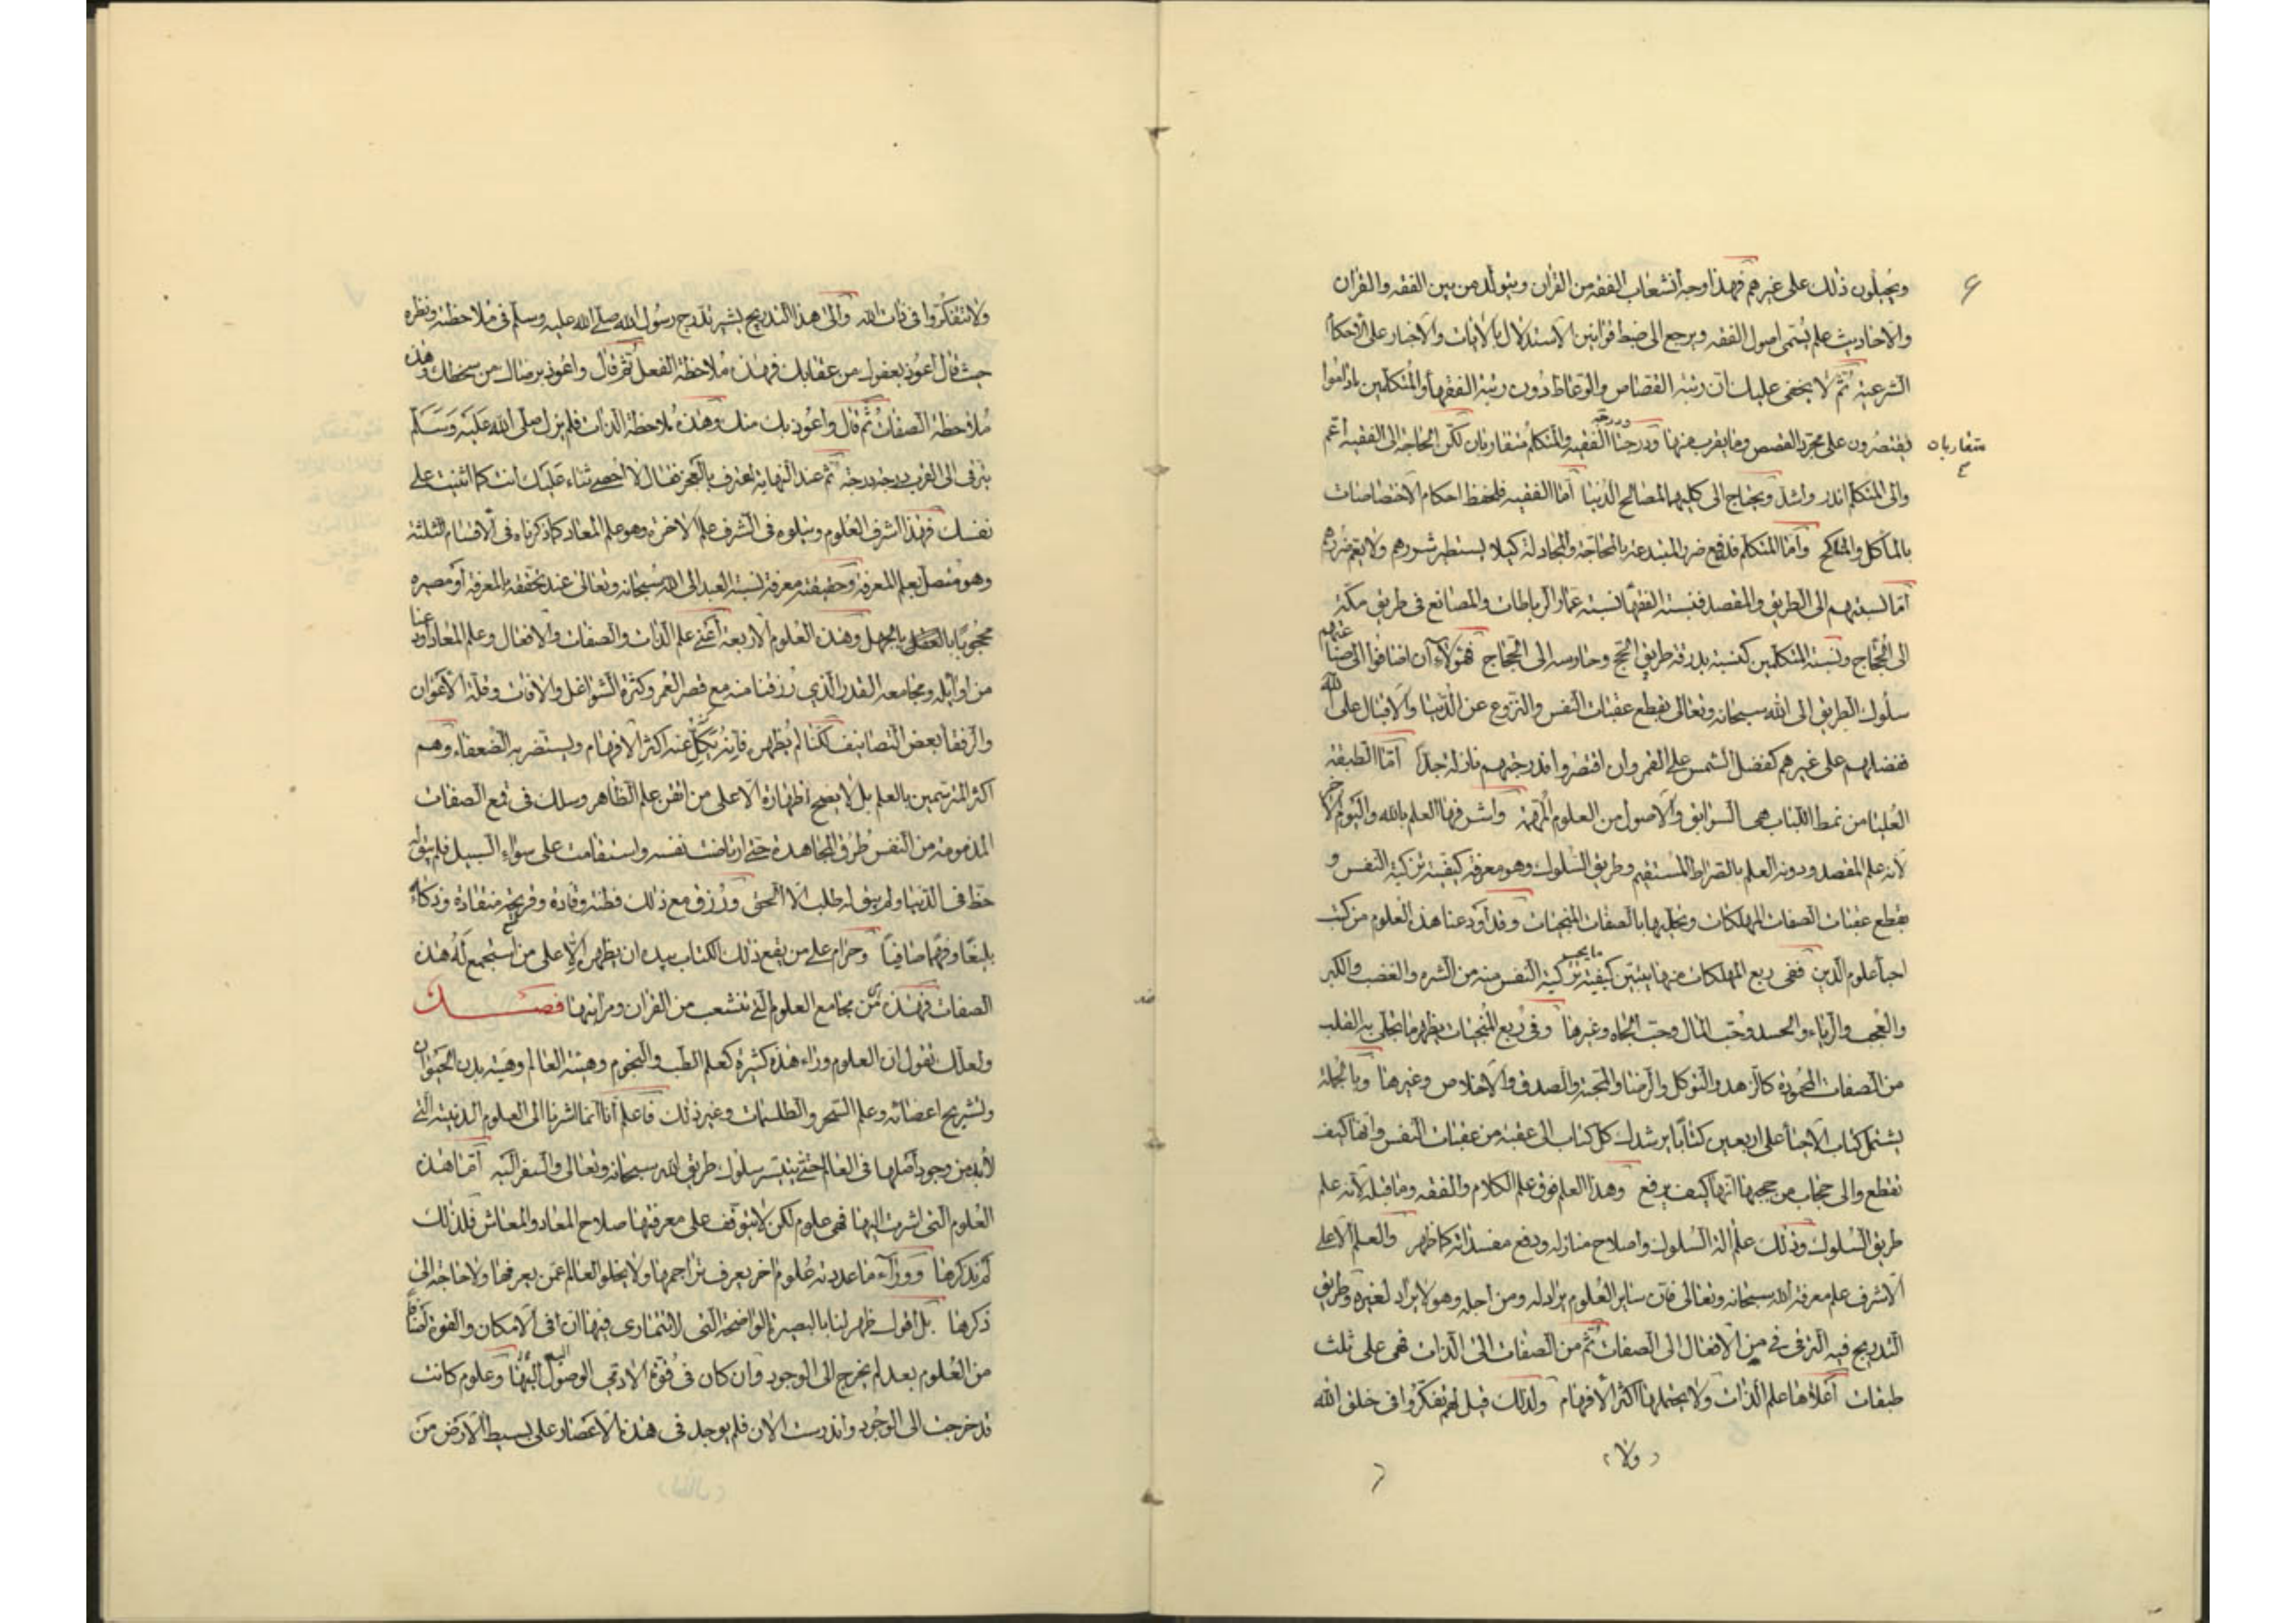 ٤
ويحيلون ذلك على غيرهم فهذا وجه انشعاب الفقه من القرآن ويتولد من بين الفقه والقرآن
والاحاديث علم يسمى اصول الفقه ويرجع الى ضبط قوانين الاستدلال بالايات والاخبار على الاحكام
الشرعية ثم لا يخفى عليك ان رتبة القصاص والوعاظ دون رتبة الفقهاء والمتكلمين ماداموا
يقتصرون على مجرد القصص وما يقرب منها ودرجة الفقيه والمتكلم متقاربان لكن الحاجة الى الفقيه اعم
متقاربان
والى المتكلم اندر واشد ويحتاج الى كليهما لمصالح الدنيا اما الفقيه فلحفظ احكام الاختصاصات
بالمآكل والمناكح واما المتكلم فلدفع ضرر المبتدعة بالمحاجة والمجادلة كيلا يستطير شررهم ولا يعم ضررهم
اما نسبتهم الى الطريق والمقصد فنسبة الفقهاء نسبة عمار الرباطات والمصانع فى طريق مكة
الى الحجاج ونسبة المتكلمين كنسبة بدرقة طريق الحج وحارسه الى الحجاج فهؤلاء ان اضافوا الى صناعتهم
سلوك الطريق الى الله سبحانه وتعالى بقطع عقبات النفس والنزوع عن الدنيا والاقبال على الله
ففضلهم على غيرهم كفضل الشمس على القمر وان اقتصروا فدرجتهم نازلة جدا اما الطبقة
العليا من نمط اللباب هى السوابق والاصول من العلوم المهمة واشرفها العلم بالله واليوم الاخر
لانه علم المقصد ودونه العلم بالصراط المستقيم وطريق السلوك وهو معرفة كيفية تزكية النفس و
بقطع عقبات الصفات المهلكات وتحليها بالصفات المنجيات وقد اودعنا هذه العلوم من كتب
احيأ علوم الدين ففى ربع المهلكات منها يتبين كيفية ما يجب تزكية النفس منه من الشره والغضب والكبر
والعجب والرياء والحسد وحب المال وحب الجاه وغيرها وفى ربع المنجيات يظهر ما يتحلى به القلب
من الصفات المحمودة كالزهد والتوكل والرضا والمحبة والصدق والاخلاص وغيرها وبالجملة
يشتمل كتاب الاحيأ على اربعين كتابا يرشدك كل كتاب الى عقبة من عقبات النفس وانها كيف
تقطع والى حجاب من حجبها انها كيف يرفع وهذا العلم فوق علم الكلام والفقه وما قبله لانه علم
طريق السلوك وذلك علم الة السلوك واصلاح منازله ودفع مفسداته كما ظهر والعلم الاعلى
الاشرف علم معرفة الله سبحانه وتعالى فان ساير العلوم يراد له ومن اجله وهو لا يراد لغيره وطريق
التدريج فيه الترقى فى من الافعال الى الصفات ثم من الصفات الى الذات فهى على ثلث
طبقات اعلاها علم الذات ولا يحتملها اكثر الافهام ولذلك قيل لهم تفكروا فى خلق الله
ولا
ولا تتفكروا فى ذات الله والى هذا التدريج يشير تدرج رسول الله صلى الله عليه وسلم فى ملاحظته ونظره
حيث قال اعوذ بعفوك من عقابك فهذه ملاحظة الفعل ثم قال واعوذ برضاك من سخطك وهذه
ملاحظة الصفات ثم قال واعوذ بك منك وهذه ملاحظة الذات فلم يزل صلى الله عليه وسلم
يترقى الى القرب درجة درجة ثم عند النهاية اعترف بالعجز فقال لا احصى ثناء عليك انت كما اثنيت على
نفسك فهذا اشرف العلوم ويتلوه فى الشرف علم الاخرة وهو علم المعاد كما ذكرناه فى الاقسام الثلثة
وهو متصل بعلم المعرفة وحقيقته معرفة نسبة العبد الى الله سبحانه وتعالى عند تحققه بالمعرفة او مصيره
محجوبا بالجهل وهذه العلوم الاربعة اعنى علم الذات والصفات والافعال وعلم المعاد اودعنا
من اوايله ومجامعه القدر الذى رزقنا منه مع قصر العمر وكثرة الشواغل والافات وقلة الاعوان
والرفقأ بعض التصانيف لكنا لم نظهره فانه يكل عنه اكثر الافهام ويستضر به الضعفاء وهم
اكثر المترسمين بالعلم بل لا يصح اظهاره الا على من اتقن علم الظاهر وسلك فى قمع الصفات
المذمومة من النفس طرق المجاهدة حتى ارتاضت نفسه واستقامت على سواء السبيل فلم يبق له
حظ فى الدنيا ولم يبق له طلب الا الحق ورزق مع ذلك فطنة وقادة وقريحة منقادة وذكاء
بليغا وفهما صافيا وحرام على من يقع ذلك الكتاب بيده ان يظهره الا على من استجمع له هذه
الصفات فهذه هى مجامع العلوم التى تنشعب من القرآن ومراتبها فصل
ولعلك تقول ان العلوم وراء هذه كثيرة كعلم الطب والنجوم وهيئة العالم وهيئة بدن الحيوان
وتشريح اعضائه وعلم السحر والطلسمات وغير ذلك فاعلم انا انما اشرنا الى العلوم الدينية التى
لابد من وجود اصلها فى العالم حتى يتيسر سلوك طريق الله سبحانه وتعالى والسفر اليه اما هذه
العلوم التى اشرت اليها فهى علوم لكن لا يتوقف على معرفتها صلاح المعاد والمعاش فلذلك
لم نذكرها ووراء ما عددته علوم اخر يعرف تراجمها ولا يخلو العالم عمن يعرفها ولا حاجة الى
ذكرها بل اقول ظهر لنا بالبصيرة الواضحة التى لا يتمارى فيها ان فى الامكان والقوة اصنافا
من العلوم بعد لم يخرج الى الوجود وان كان فى قوة الادمى الوصول اليها وعلوم كانت
قد خرجت الى الوجود واندرست الان فلم يوجد فى هذه الاعصار على بسيط الارض من